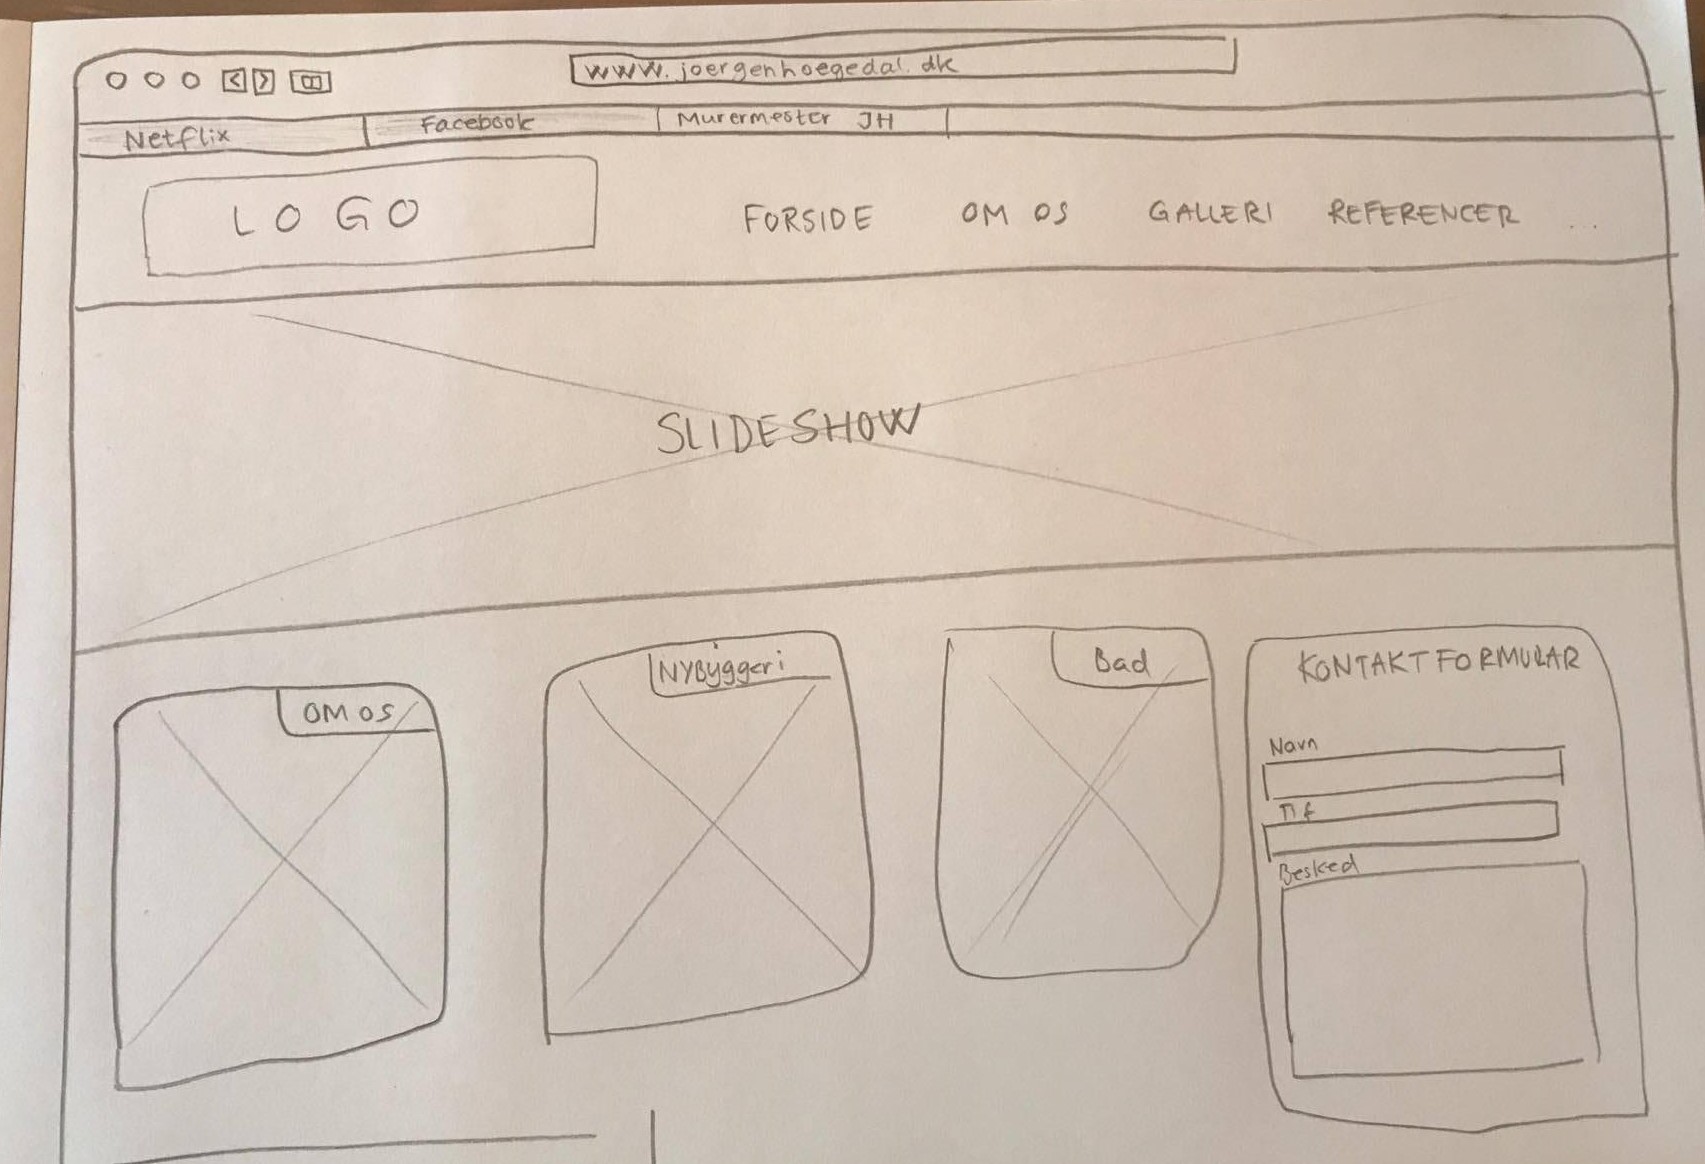 www.joergenhoegedal.dk
Netflix
Facebook
Murermester JH
LOGO
FORSIDE
OM OS
GALLERI
REFERENCER
...
SLIDESHOW
OM OS
NYByggeri
Bad
KONTAKTFORMULAR
Navn
Tlf
Besked